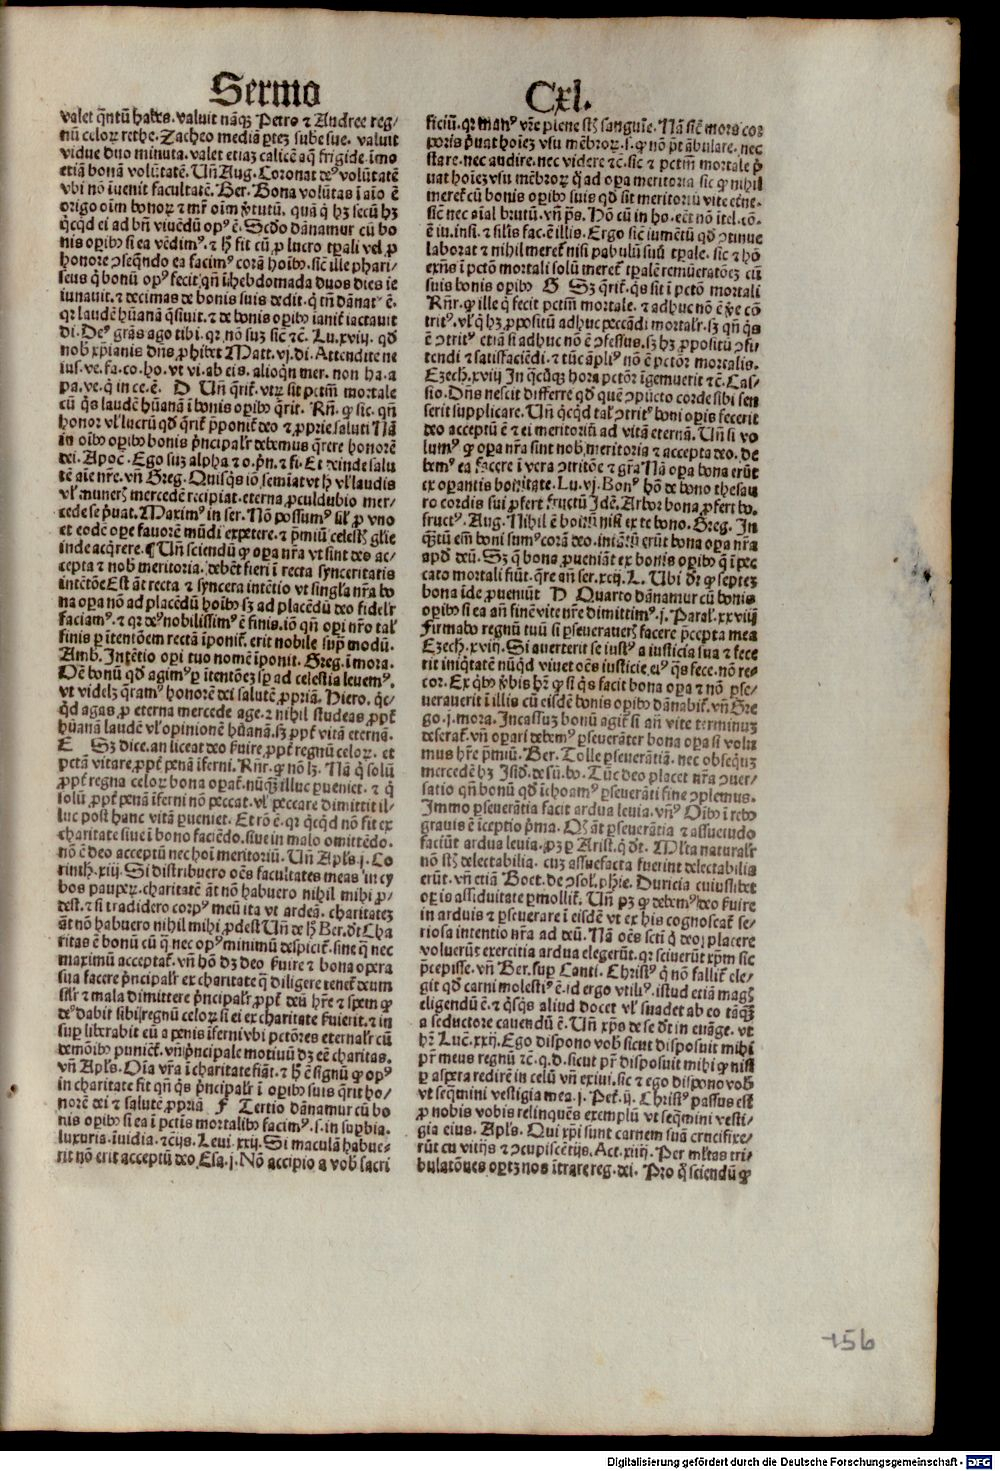 Sermo
Cxl.
valet q̃ntũ habes. valuit nãq̃ Petro ⁊ Andree reg⸗
nũ celoꝝ rethe. Zacheo mediã ꝑteʒ substue. valuit
vidue duo minuta. valet etiaʒ calicē aq̃ frigide. imo
etiã bonã volũtatē. Uñ Aug. Coronat deꝰ volũtatē
vbi nõ ĩuenit facultatē. Ber. Bona volũtas ĩ aĩo ē
origo oĩm bonoꝝ ⁊ mr̃ oĩm ꝟtutũ. quã q̇ hʒ secũ hʒ
q̇cq̇d ei ad bñ viuēdũ opꝰ ē. Scďo dãnamur cũ bo
nis oꝑibꝰ si ea vēdimꝰ. ⁊ h̃ fit cũ ꝓ lucro tꝑali vel ꝓ
honore ꝯseq̃ndo ea facimꝰ corã hoĩbꝰ. sič ille phari⸗
seus q̇ bonũ opꝰ fecit qñ ĩ hebdomada duos dies ie
iunauit. ⁊ decimas de bonis suis dedit. q̇ tñ dãnatꝰ ē.
qꝛ laudē hũanã q̃siuit. ⁊ de bonis oꝑibꝰ ianit̃ iactauit
di. Deꝰ grãs ago tibi. qꝛ nõ suʒ sič ⁊č. Lu. xviij. qď
nob̃ xp̃ianis dñs ꝓhibet Matt. vj. di. Attendite ne
ius. ve. fa. co. ho. vt vi. ab eis. alioq̇n mer. non ha. a
pa. ve. q̇ in ce. ē. D Uñ q̃rit̃. vtꝝ sit pctm̃ mortale
cũ q̇s laudē hũanã ĩ bonis oꝑibꝰ q̃rit. Rñ. ꝙ sic. qñ
honor vl̃ lucrũ qď q̃rit̃ p̃ponit̃ deo ⁊ ꝓprie saluti Nã
in oĩbꝰ oꝑibꝰ bonis p̃ncipalr̃ debemus q̃rere honorē
dei. Apoč. Ego suʒ alpha ⁊ o. pñ. ⁊ fi. Et deinde salu
tē aĩe nr̃e. vñ Greg. Quisq̇s iõ seminat vt h̃ vl̃ laudis
vl̃ munerꝭ mercedē recipiat. eterna ꝓculdubio mer⸗
cede se p̃uat. Maximꝰ in ser. Nõ possumꝰ sil̃ ꝓ vno
et eodē oꝑe fauorē mũdi expetere. ⁊ p̃miũ celestꝭ glĩe
inde acq̇rere. ¶ Uñ sciendũ ꝙ oꝑa nr̃a vt sint deo ac⸗
cepta ⁊ nob̃ meritoria. debēt fieri ĩ recta synceritatis
intētõe Est ãt recta ⁊ syncera intētio vt singl̃a nr̃a bo
na oꝑa nõ ad placēdũ hoĩbꝰ sʒ ad placēdũ deo fidelr̃
faciamꝰ. ⁊ qꝛ deꝰ nobilissimꝰ ē finis. iõ qñ oꝑi nr̃o tal̃
finis ꝑ ĩtentõem rectã ĩponit̃. erit nobile suꝑ modũ.
Amb. Intētio oꝑi tuo nomē ĩponit. Greg. ĩ mora.
Oē bonũ qď agimꝰ ꝑ itentõeʒ sp̃ ad celestia leuemꝰ.
vt videlʒ q̃ramꝰ honorē dei ⁊ salutē ꝓpriã. Hiero. q̇c⸗
q̇d agas ꝓ eterna mercede age. ⁊ nihil studeas ꝓpt̃
hũanã laudē vl̃ opinionē hũanã. sʒ ꝓpt̃ vitã eternã.
E Sʒ dice. an liceat deo ẜuire ꝓpt̃ regnũ celoꝝ. et
pctã vitare ꝓpt̃ penã iferni. Rñr̃. ꝙ nõ lʒ. Nã q̇ solũ
ꝓpt̃ regna celoꝝ bona oꝑat̃. nũq̃ʒ illuc ꝑueniet. ⁊ q̇
solũ ꝓpt̃ penã iferni nõ peccat. vl̃ peccare dimittit il⸗
luc post hanc vitã ꝑueniet. Et rõ ē. qꝛ q̇cq̇d nõ fit ex
charitate siue ĩ bono faciēdo. siue in malo omittēdo.
nõ ē deo acceptũ nec hoĩ meritoriũ. Uñ Apl̃s. j. Co
rinth. xiij. Si distribuero oẽs facultates meas in cy
bos pauperꝝ. charitatē ãt nõ habuero nihil mihi ꝓ⸗
dest. ⁊ si tradidero corpꝰ meũ ita vt ardeã. charitateʒ
ãt nõ habuero nihil mihi ꝓdest Uñ de h̃ Ber. ďt Cha
ritas ē bonũ cũ q̃ nec opꝰ minimũ despicit̃. sine q̃ nec
maximũ acceptat̃. vñ hõ dʒ deo ẜuire ⁊ bona opera
sua facere p̃ncipalr̃ ex charitate q̃ diligere tenet̃ deum
silr̃ ⁊ mala dimittere p̃ncipalr̃ ꝓpt̃ deũ hr̃e ⁊ spem ꝙ
deꝰ dabit sibi regnũ celoꝝ si ei ex charitate ẜuierit. ⁊ in
suꝑ liberabit eũ a penis iferni vbi pctõres eternalr̃ cũ
demõibꝰ puniẽt̃. vñ p̃ncipale motiuũ dʒ eē charitas.
vñ Apl̃s. Oĩa vr̃a ĩ charitate fiãt. ⁊ h̃ ē signũ ꝙ opꝰ
in charitate fit qñ q̇s p̃ncipalr̃ ĩ oꝑibꝰ suis q̃rit ho⸗
norē dei ⁊ salutē ꝓpriã F Tertio dãnamur cũ bo
nis oꝑibꝰ si ea ĩ pctĩs mortalibꝰ facimꝰ. s. in suꝑbia.
luxuria. ĩuidia. ⁊čijs. Leui. xxij. Si maculã habue⸗
rit nõ erit acceptũ deo Esa. j. Nõ accipio a vob̃ sacri
ficiũ. qꝛ manꝰ vr̃e plene st̃ sanguĩe. Nã sič mors cor
poris p̃uat hoĩeʒ vsu mēbroꝝ. s. ꝙ nõ pt̃ ãbulare. nec
stare. nec audire. nec videre ⁊č. sic ⁊ pctm̃ mortale p̃
uat hoĩeʒ vsu mēbroꝝ q̇ ad oꝑa meritoria sic ꝙ nihil
meret̃ cũ bonis oꝑibꝰ suis qď sit meritoriũ vite etñe.
sič nec aĩal brutũ. vñ ps̃. Hõ cũ in ho. eēt nõ itel. cõ.
ē iu. insi. ⁊ sil̃is fac. ē illis. Ergo sič iumētũ qď ꝯtinue
laborat ⁊ nihil meret̃ nisi pabulũ suũ tꝑale. sic ⁊ hõ
exñs ĩ pctõ mortali solũ meret̃ tꝑalē remũeratõeʒ cũ
suis bonis oꝑibꝰ G Sʒ q̃rit̃. q̇s sit ĩ pctõ mortali
Rñr̃. ꝙ ille q̇ fecit pctm̃ mortale. ⁊ adhuc nõ ē ꝟe cõ
tritꝰ. vl̃ q̇ hʒ ꝓpositũ adhuc peccãdi mortalr̃. sʒ qñ q̇s
ē ꝯtritꝰ etiã si adhuc nõ ē ꝯfessus. sʒ hʒ ꝓpositũ ꝯfi⸗
tendi ⁊ satisfaciēdi. ⁊ tũc ãpliꝰ nõ ē pctõr mortalis.
Ezech. xviij In q̃cũqʒ hora pctõr ĩgemuerit ⁊č. Cas⸗
sio. Dñs nescit differre qď quē ꝯpũcto corde sibi sen
serit supplicare. Uñ q̇cq̇d tal̃ ꝯtritꝰ boni oꝑis fecerit
deo acceptũ ē ⁊ ei meritoriũ ad vitã eternã. Uñ si vo
lumꝰ ꝙ oꝑa nr̃a sint nob̃ meritoria ⁊ accepta deo. de
bemꝰ ea facere ĩ vera ꝯtritõe ⁊ gr̃a Nã oꝑa bona erũt
ex oꝑantis bonitate. Lu. vj. Bonꝰ hõ de bono thesau
ro cordis sui ꝓfert fructũ Idē. Arbor bona ꝓfert bo.
fructꝰ. Aug. Nihil ē bonũ nisi ex te bono. Greg. In
q̃ʒtũ em̃ boni sumꝰ corã deo. intãtũ erũt bona oꝑa nr̃a
apď deũ. Sʒ q̃ bona ꝓueniãt ex bonis oꝑibꝰ q̃ ĩ pec
cato mortali fiũt. q̃re añ ser. xcij. L. Ubi ďt ꝙ septeʒ
bona ĩde ꝓueniũt H Quarto dãnamur cũ bonis
oꝑibꝰ si ea añ finē vite nr̃e dimittimꝰ. j. Paral̃. xxviij
Firmabo regnũ tuũ si ꝑseuerauerꝭ facere p̃cepta mea
Ezech. xviij. Si auerterit se iustꝰ a iusticia sua ⁊ fece
rit iniq̇tatē nũq̇d viuet oẽs iusticie eiꝰ q̃s fece. nõ re⸗
cor. Ex q̇bꝰ ꝟbis hr̃ ꝙ si q̇s facit bona oꝑa ⁊ nõ ꝑse⸗
verauerit ĩ illis cũ eisdē bonis oꝑibꝰ dãnabit̃. vñ Gre
go. j. mora. Incassuʒ bonũ agit̃ si añ vite terminuʒ
deserat̃. vñ oꝑari debemꝰ ꝑseuerãter bona oꝑa si volu
mus hr̃e p̃miũ. Ber. Tolle ꝑseuerãtiã. nec obsequiʒ
mercedē hʒ Isid̃. de sũ. bo. Tũc deo placet nr̃a ꝯuer⸗
satio qñ bonũ qď ĩchoamꝰ ꝑseuerãti fine ꝯplemus.
Immo ꝑseuerãtia facit ardua leuia. vñꝰ Oĩbꝰ ĩ rebꝰ
grauis ē ĩceptio p̃ma. Qʒ ãt ꝑseuerãtia ⁊ assuetudo
faciũt ardua leuia. ꝓʒ ꝑ Arist. q̇ ďt. Ml̃ta naturalr̃
nõ st̃ delectabilia. cuʒ assuefacta fuerint delectabilia
erũt. vñ etiã Boet. de ꝯsol̃. phie. Duricia cuiuslibet
oꝑis assiduitate ꝑmollit̃. Uñ pʒ ꝙ debemꝰ deo ẜuire
in arduis ⁊ ꝑseuerare ĩ eisdē vt ex his cognoscat̃ se⸗
riosa intentio nr̃a ad deũ. Nã oẽs sctĩ q̇ deo placere
voluerũt exercitia ardua elegerũt. qꝛ sciuerũt xp̃m sic
p̃cepisse. vñ Ber. suꝑ Canti. Christꝰ q̇ nõ fallit̃ ele⸗
git qď carni molestiꝰ ē. id ergo vtiliꝰ. istud etiã magꝭ
eligendũ ē. ⁊ q̇sq̇s aliud docet vl̃ suadet ab eo tãq̃ʒ
a seductore cauendũ ē. Uñ xp̃s de se ďt in euãge. vt
hr̃ Luč. xxij. Ego dispono vob̃ sicut disposuit mihi
pr̃ meus regnũ ⁊č. q. d. sicut pr̃ disposuit mihi ꝙ nisi
ꝑ aspera redirē in celũ vñ exiui. sic ⁊ ego dispono vob̃
vt seq̃mini vestigia mea. j. Pet̃. ij. Christꝰ passus est
ꝓ nobis vobis relinquẽs exemplũ vt seq̃mini vesti⸗
gia eius. Apl̃s. Qui xp̃i sunt carnem suã crucifixe⸗
rũt cũ vitijs ⁊ ꝯcupiscētijs. Act. xiiij. Per ml̃tas tri⸗
bulatões oꝑtʒ nos ĩtrare reg. dei. Pro q̃ sciendũ ꝙ
156
Digitalisierung gefördert durch die Deutsche Forschungsgemeinschaft - DFG